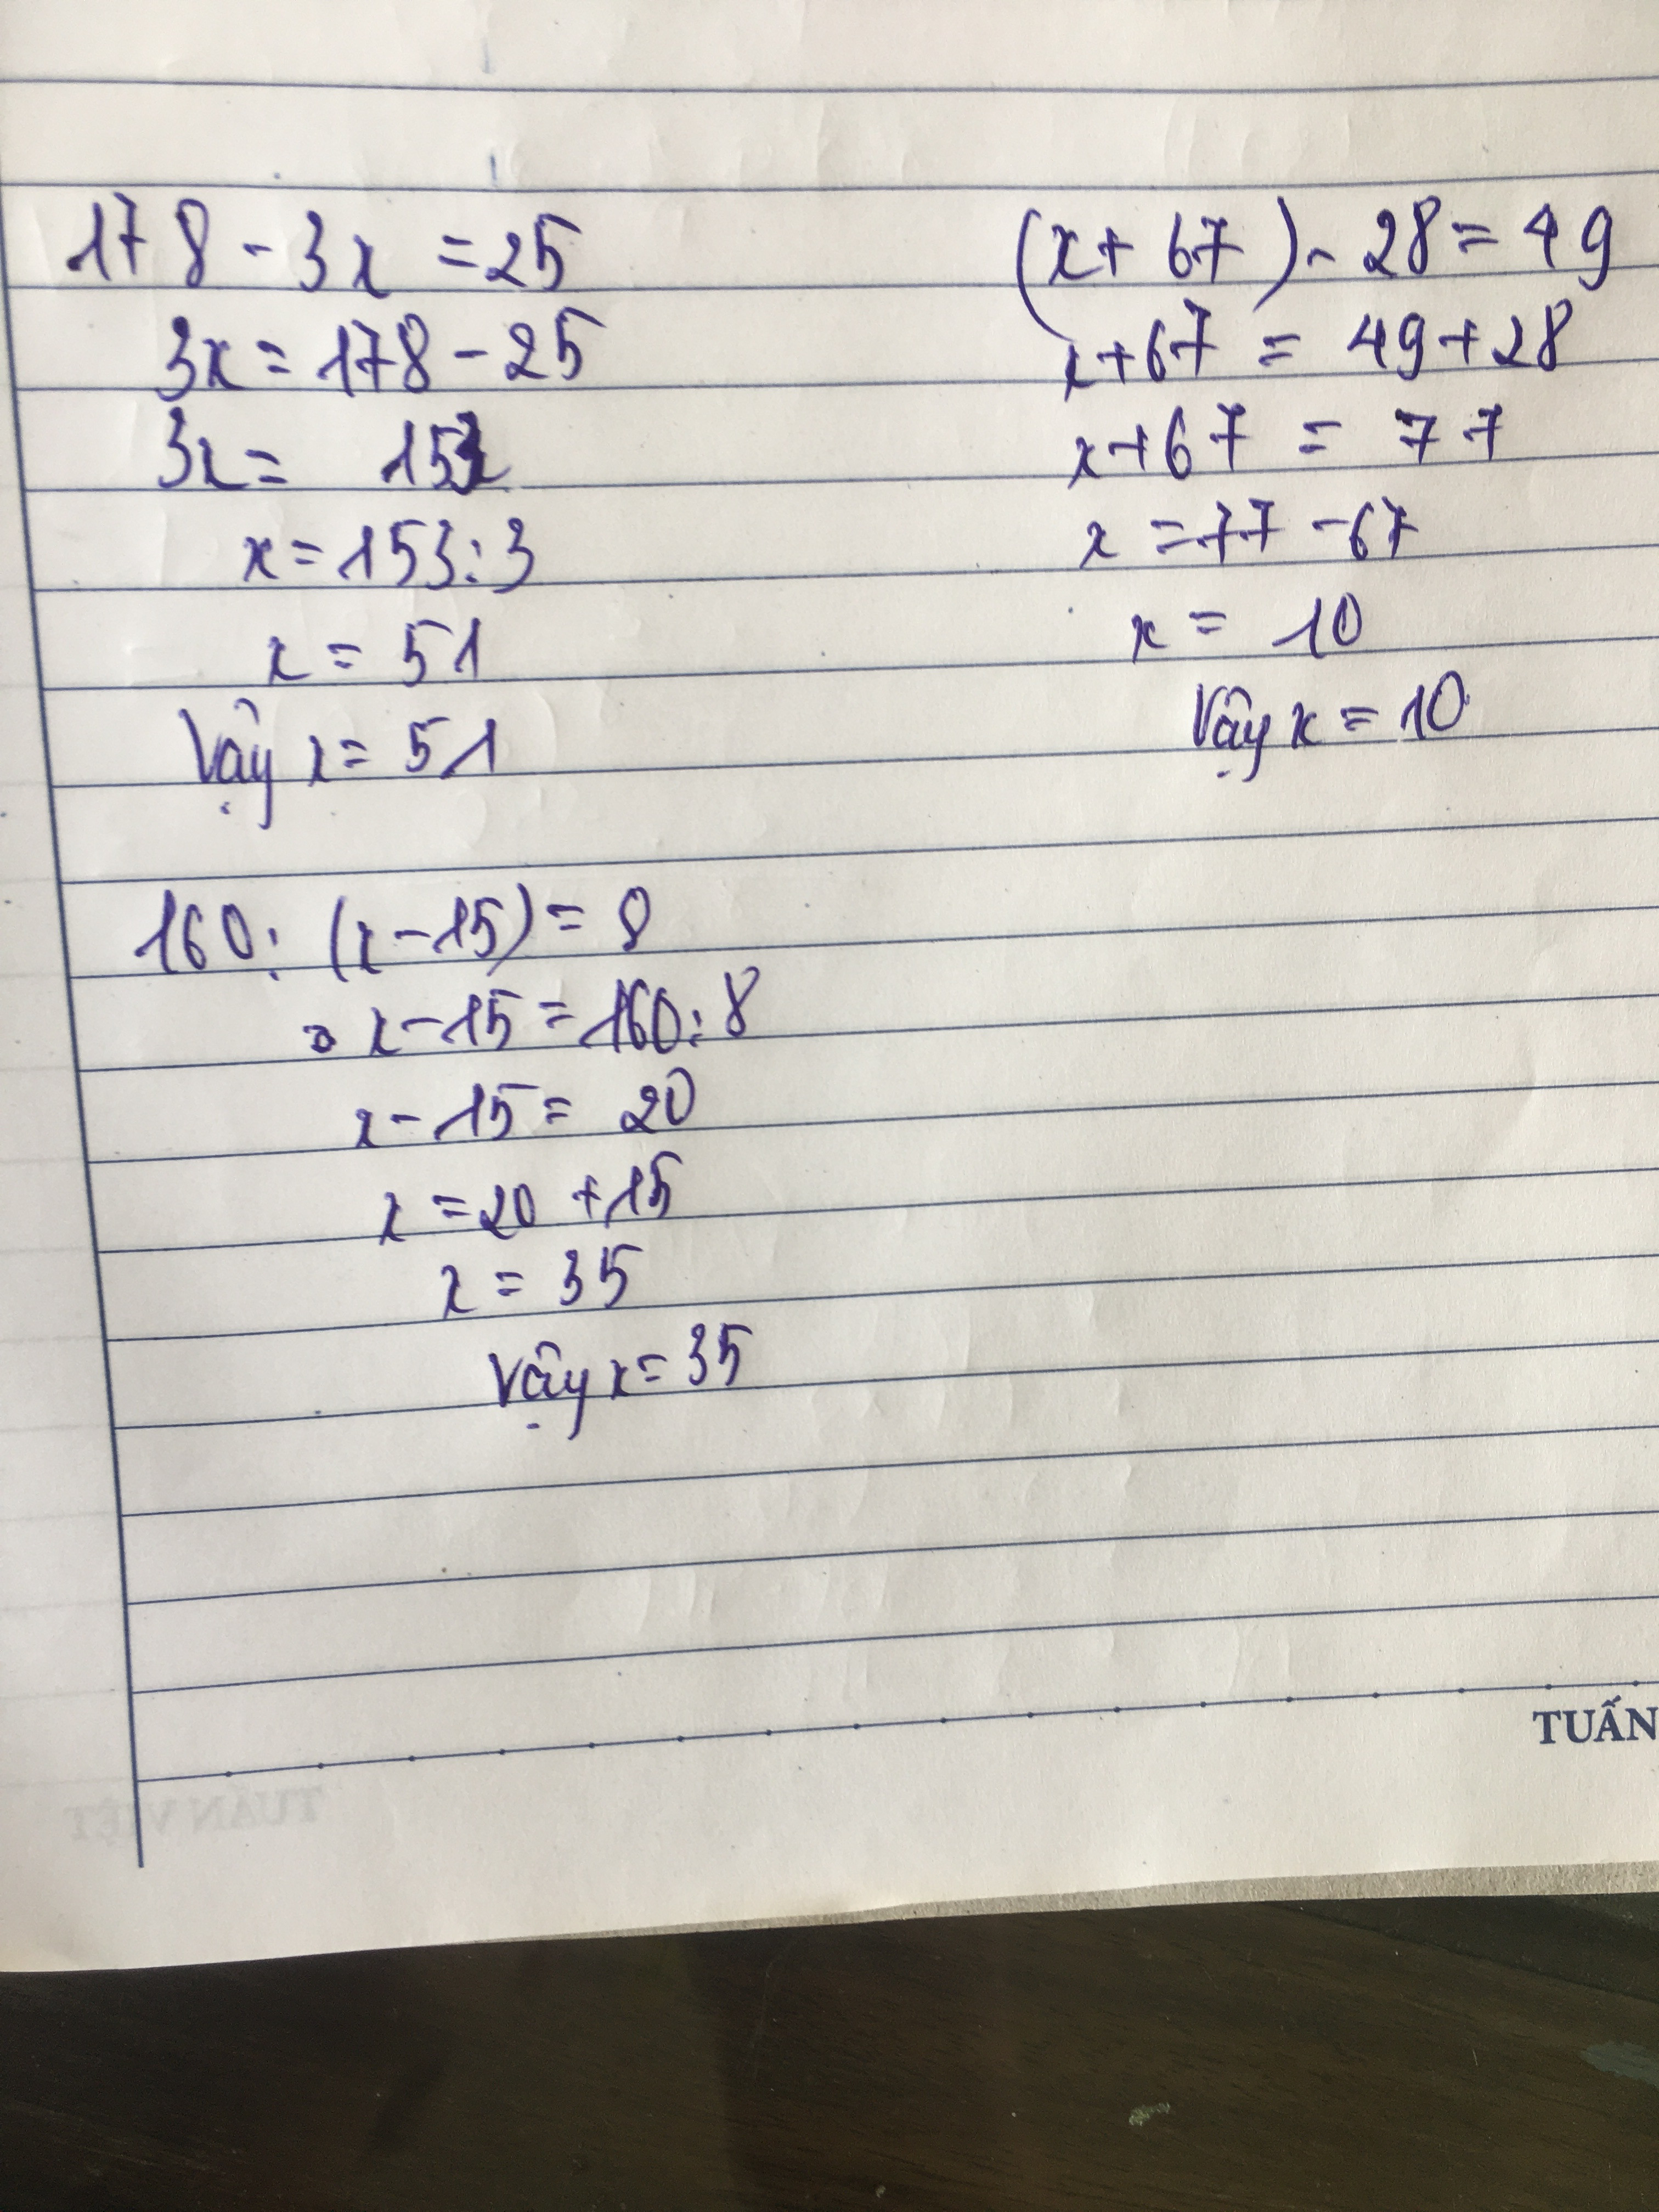 178 - 3x = 25
3x = 178 - 25
3x = 153
x = 153 : 3
x = 51
Vậy x = 51
(x + 67) - 28 = 49
x + 67 = 49 + 28
x + 67 = 77
x = 77 - 67
x = 10
Vậy x = 10
160 : (x - 15) = 8
x - 15 = 160 : 8
x - 15 = 20
x = 20 + 15
x = 35
Vậy x = 35
TUẤN
TUẤN VIỆT